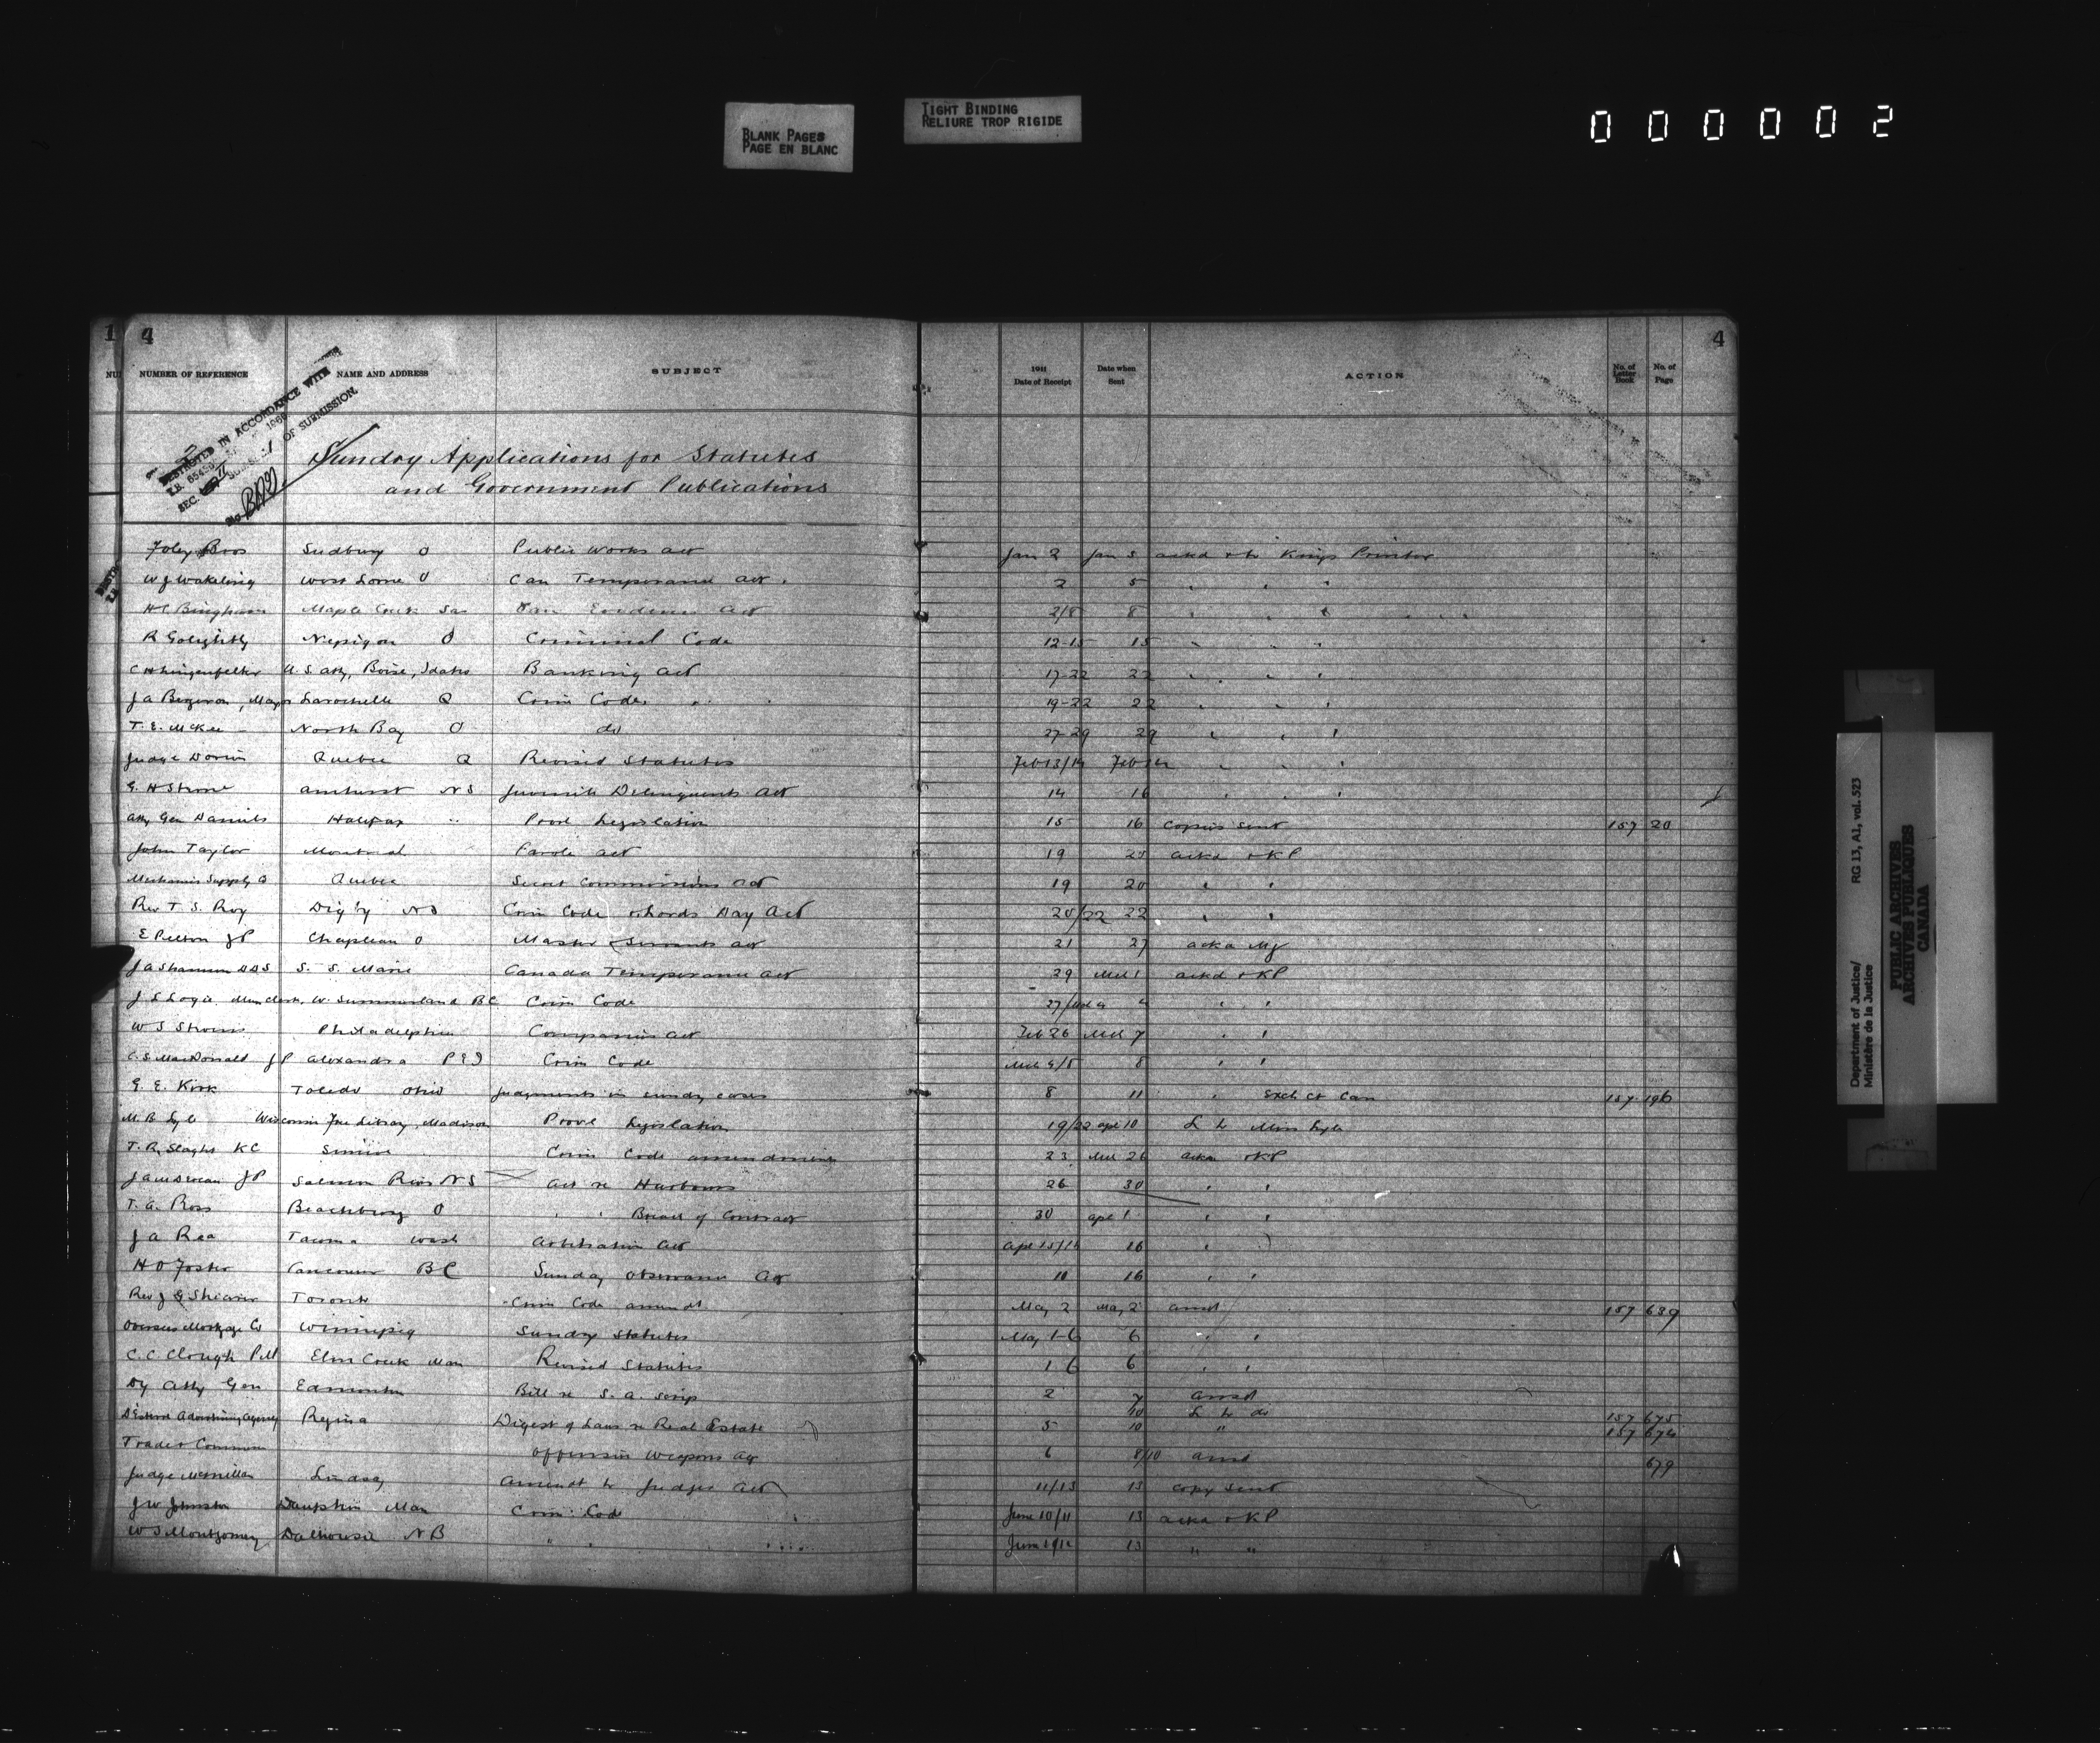 BLANK PAGES
PAGE EN BLANC
TIGHT BINDING
RELIURE TROP RIGIDE
000002
1 4
4
NUMBER OF REFERENCE NAME AND ADDRESS SUBJECT 1911 Date of Receipt Date when Sent ACTION No. of Letter Book No. of Page
DESTROYED IN ACCORDANCE WITH
OF SUBMISSION.
SEC.
Sundry Applications for Statutes
and Government Publications
Foley Bros Sudbury O Public Works Act Jan 2 Jan 5 ackd & to Kings Printer
W J Wakeling O Can Temperance Act 2 5 " " "
H C Bingham Maple Creek Sas Can Evidence Act 2/8 8 " " "
R Golightly Nepigon O Criminal Code 12-15 15 " " "
C H Lingenfelter U.S. Atty, Boise, Idaho Banking Act 17-22 22 " " "
J A Bergeron, Mayor Larochelle Q Crim Code 19-22 22 " " "
T. E. McKee North Bay O do 27-29 29 " " "
Judge Dorion Quebec Q Revised Statutes Feb 13/14 Feb 14 " " "
Amherst NS Juvenile Delinquents Act 14 16 " " "
Atty Gen Daniels Halifax " Provl Legislation 15 16 Copies sent 157 20
John Taylor Montreal Parole Act 19 ackd & KP
Mechanics Supply Co Quebec Secret Commissions Act 19 20 " "
Rev T. S. Roy Digby NS Crim Code & Lords Day Act 20/22 22 " "
E Pellow JP Chapleau O Master & Servants Act 21 27
J A Shannon DDS S. S. Marie Canada Temperance Act 29 Mch 1 ackd & KP
J L Logie, Mun Clerk, W. Summerland BC Crim Code 27/Mch 4 4 " "
W S Philadelphia Companies Act Feb 26 Mch 7 " "
C. S. MacDonald JP Alexandra P E I Crim Code Mch 8 " "
G. E. Kirk Toledo Ohio Judgments in sundry cases 8 11 " Exch Ct Can 157 196
M. B. Lyle Wisconsin Free Library, Madison Provl Legislation 19/22 Apl 10 L to Miss Lyle
T. R. Slaght KC Simcoe Crim Code amendments 23 Mch ackd & KP
JP Salmon River NS Act re Harbours 26 30 " "
T. A. Ross Beachburg O " " Breach of Contract 30 Apl 1 " "
J A Rea Tacoma Wash Arbitration Act Apl 16 "
H O Foster Vancouver BC Sunday Observance Act 16 " "
Rev J G Shearer Toronto Crim Code amendt May 2 May 2 ansd 157 639
Overseas Mortgage Co Winnipeg Sundry Statutes May 1-6 6 " "
C. C. Clough PM Elm Creek Man Revised Statutes 1 6 6 " "
Dy Atty Gen Edmonton Bill re S. A. Scrip 2 7 ansd
10 L to do 157 675
Advertising Agency Regina Digest of Laws re Real Estate 5 10 " 157 674
Trade & Commerce Offensive Weapons Act 6 8/10 ansd 679
Judge McMillan Lindsay Amendt to Judges Act 11/13 13 copy sent
J W Johnston Dauphin Man Crim Code June 10/11 13 ackd & KP
W S Montgomery Dalhousie NB " " June 13 " "
Department of Justice/ RG 13, A1, vol. 523
Ministère de la Justice
PUBLIC ARCHIVES
ARCHIVES PUBLIQUES
CANADA